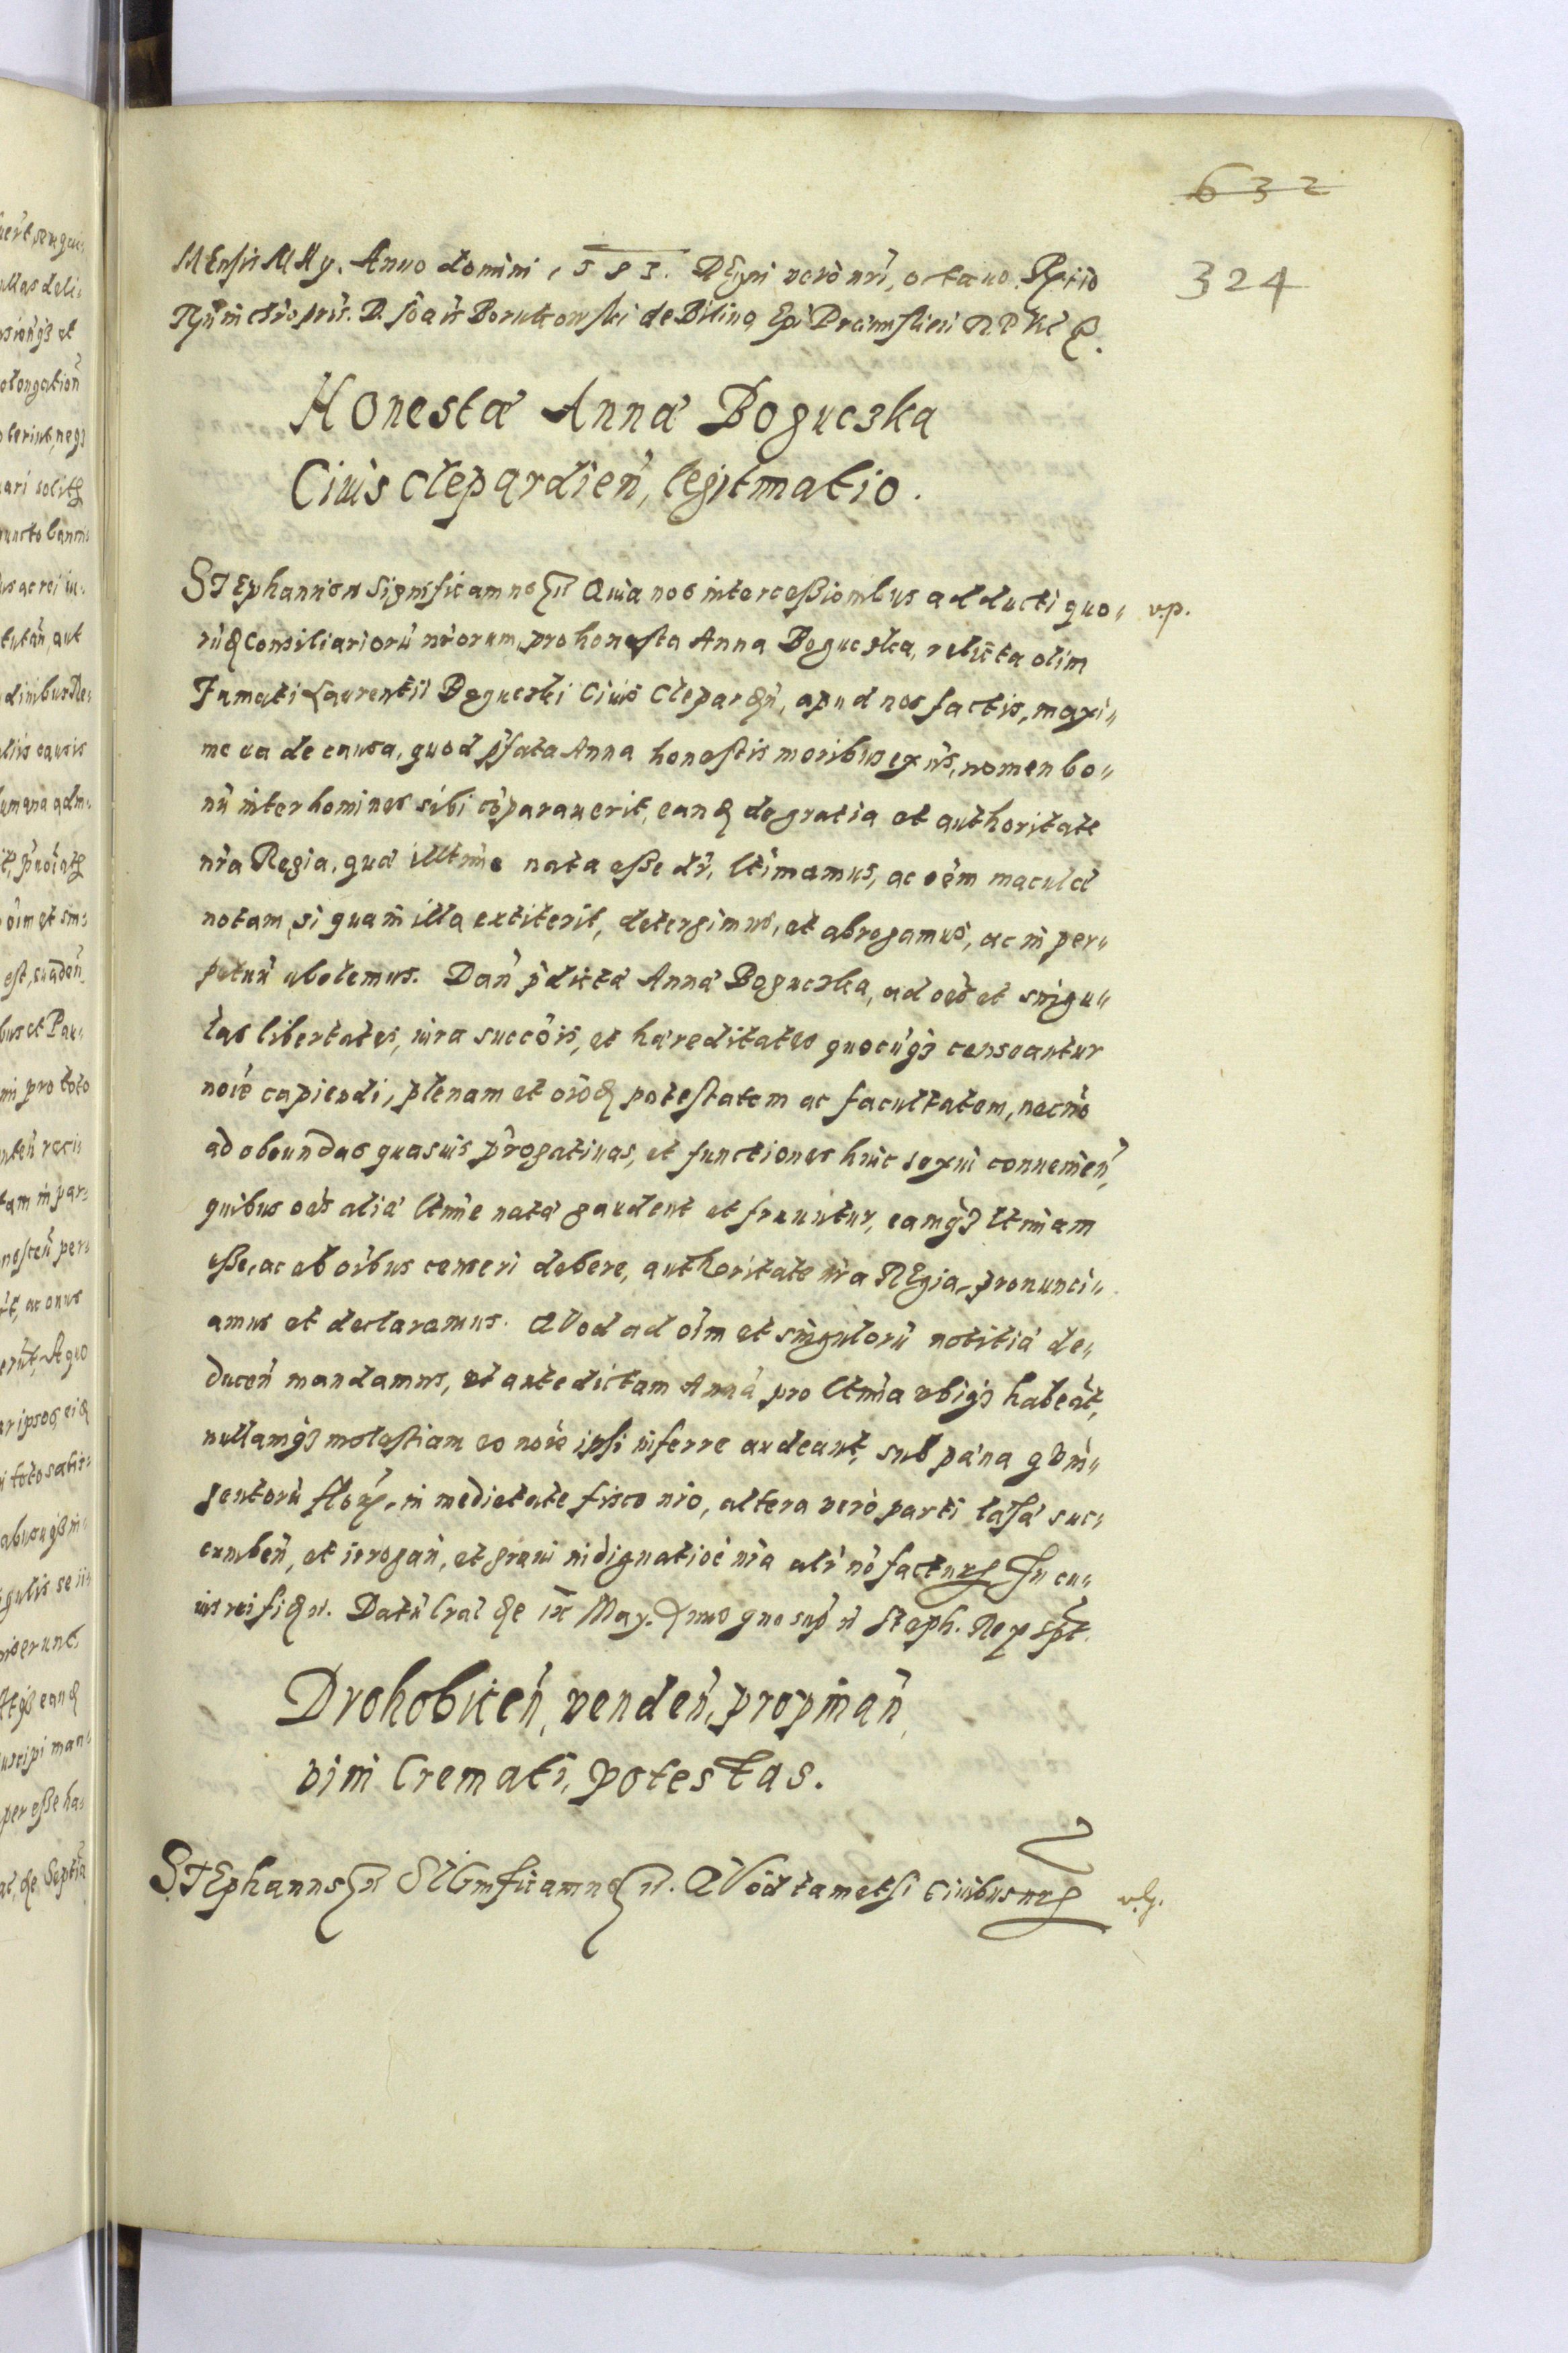 632
324
MEnsis MAy. Anno domini, 1583. REgni vero nri, octavo. Rltio
Rndi in Chro pris. D. Joãis Borukowski de Bilina Epi Præmislien R P V C &.
Honestæ Annæ Boguczka
Civis Clepardieñ, legitimatio.
STEphanus Rx Significamus &c Quia nos intercessionibus adducti quo„ v.p.
rũd Consiliariorũ nrorum, pro honesta Anna Boguczka, relicta olim
Famati Laurentii Boguczki Civis Clepardñ, apud nos factis, maxi„
me ea de causa, quod pfata Anna honestis moribus exñs, nomen bo„
nũ inter homines sibi cõparaverit, eand de gratia et authoritate
nra Regia, quæ illtime nata esse dr, ltimamus, ac oẽm maculæ
notam, si quam illa extiterit, detergimus, et abrogamus, ac in per„
petuũ abolemus. Dañ pdictæ Annæ Boguczka, ad oẽs et singu„
las libertates, iura succõis, et hæreditates quocũq3 censeantur
noĩe capiendi, plenam et oĩod potestatem ac facultatem, necnõ
ad obeundas quasvis progativas, et functiones huic sexui convenieñ,
quibus oẽs aliæ ltime natæ gaudent et fruuntur, eamq3 ltimam
esse, ac ab oĩbus censeri debere, authoritate nra REgia, pronunci„
amus et declaramus. QVod ad oĩm et singulorũ notitiã de„
duceñ mandamus, ut antedictam Annã pro ltima ubiq3 habeãt,
nullamq3 molestiam eo noĩe ipsi inferre audeant, sub pæna qVin„
gentorũ flor, in medietate fisco nro, altera vero parti læsæ suc„
cumbeñ, et irrogañ, et gravi indignatiõe nra alr nõ facturj In cu„
ius rei fid &c. Datũ Crac die ix May. Anno quo sup &c Steph. Rex spt.
Drohobiceñ, vendeñ, propinañ
vini Cremati, potestas.
STEphanus &c SIGnificamus &c. QVod tametsi Civibus nrj v.p.